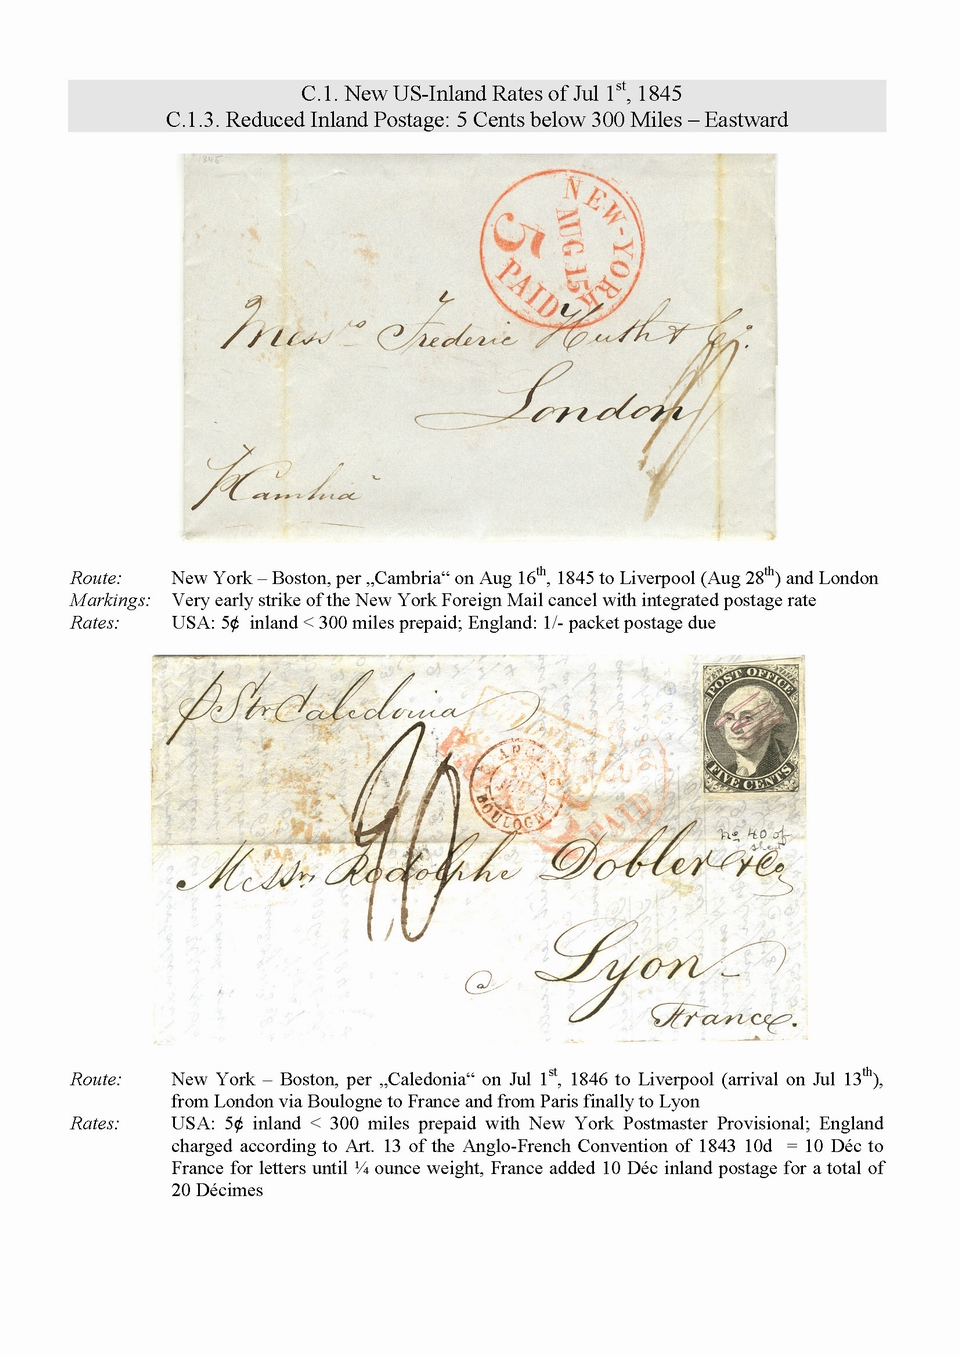 C.1. New US-Inland Rates of Jul 1st, 1845
C.1.3. Reduced Inland Postage: 5 Cents below 300 Miles – Eastward
1845
NEW-YORK
AUG 15
5
PAID
Messrs Frederic Huth & Co.
London
p Cambria
Route: New York – Boston, per „Cambria“ on Aug 16th, 1845 to Liverpool (Aug 28th) and London
Markings: Very early strike of the New York Foreign Mail cancel with integrated postage rate
Rates: USA: 5¢ inland < 300 miles prepaid; England: 1/- packet postage due
p Str Caledonia
POST OFFICE
FIVE CENTS
BOULOGNE
PAID
No 40 of
Messrs Rodolphe Dobler & Co
a Lyon
France.
Route: New York – Boston, per „Caledonia“ on Jul 1st, 1846 to Liverpool (arrival on Jul 13th),
from London via Boulogne to France and from Paris finally to Lyon
Rates: USA: 5¢ inland < 300 miles prepaid with New York Postmaster Provisional; England
charged according to Art. 13 of the Anglo-French Convention of 1843 10d = 10 Déc to
France for letters until ¼ ounce weight, France added 10 Déc inland postage for a total of
20 Décimes